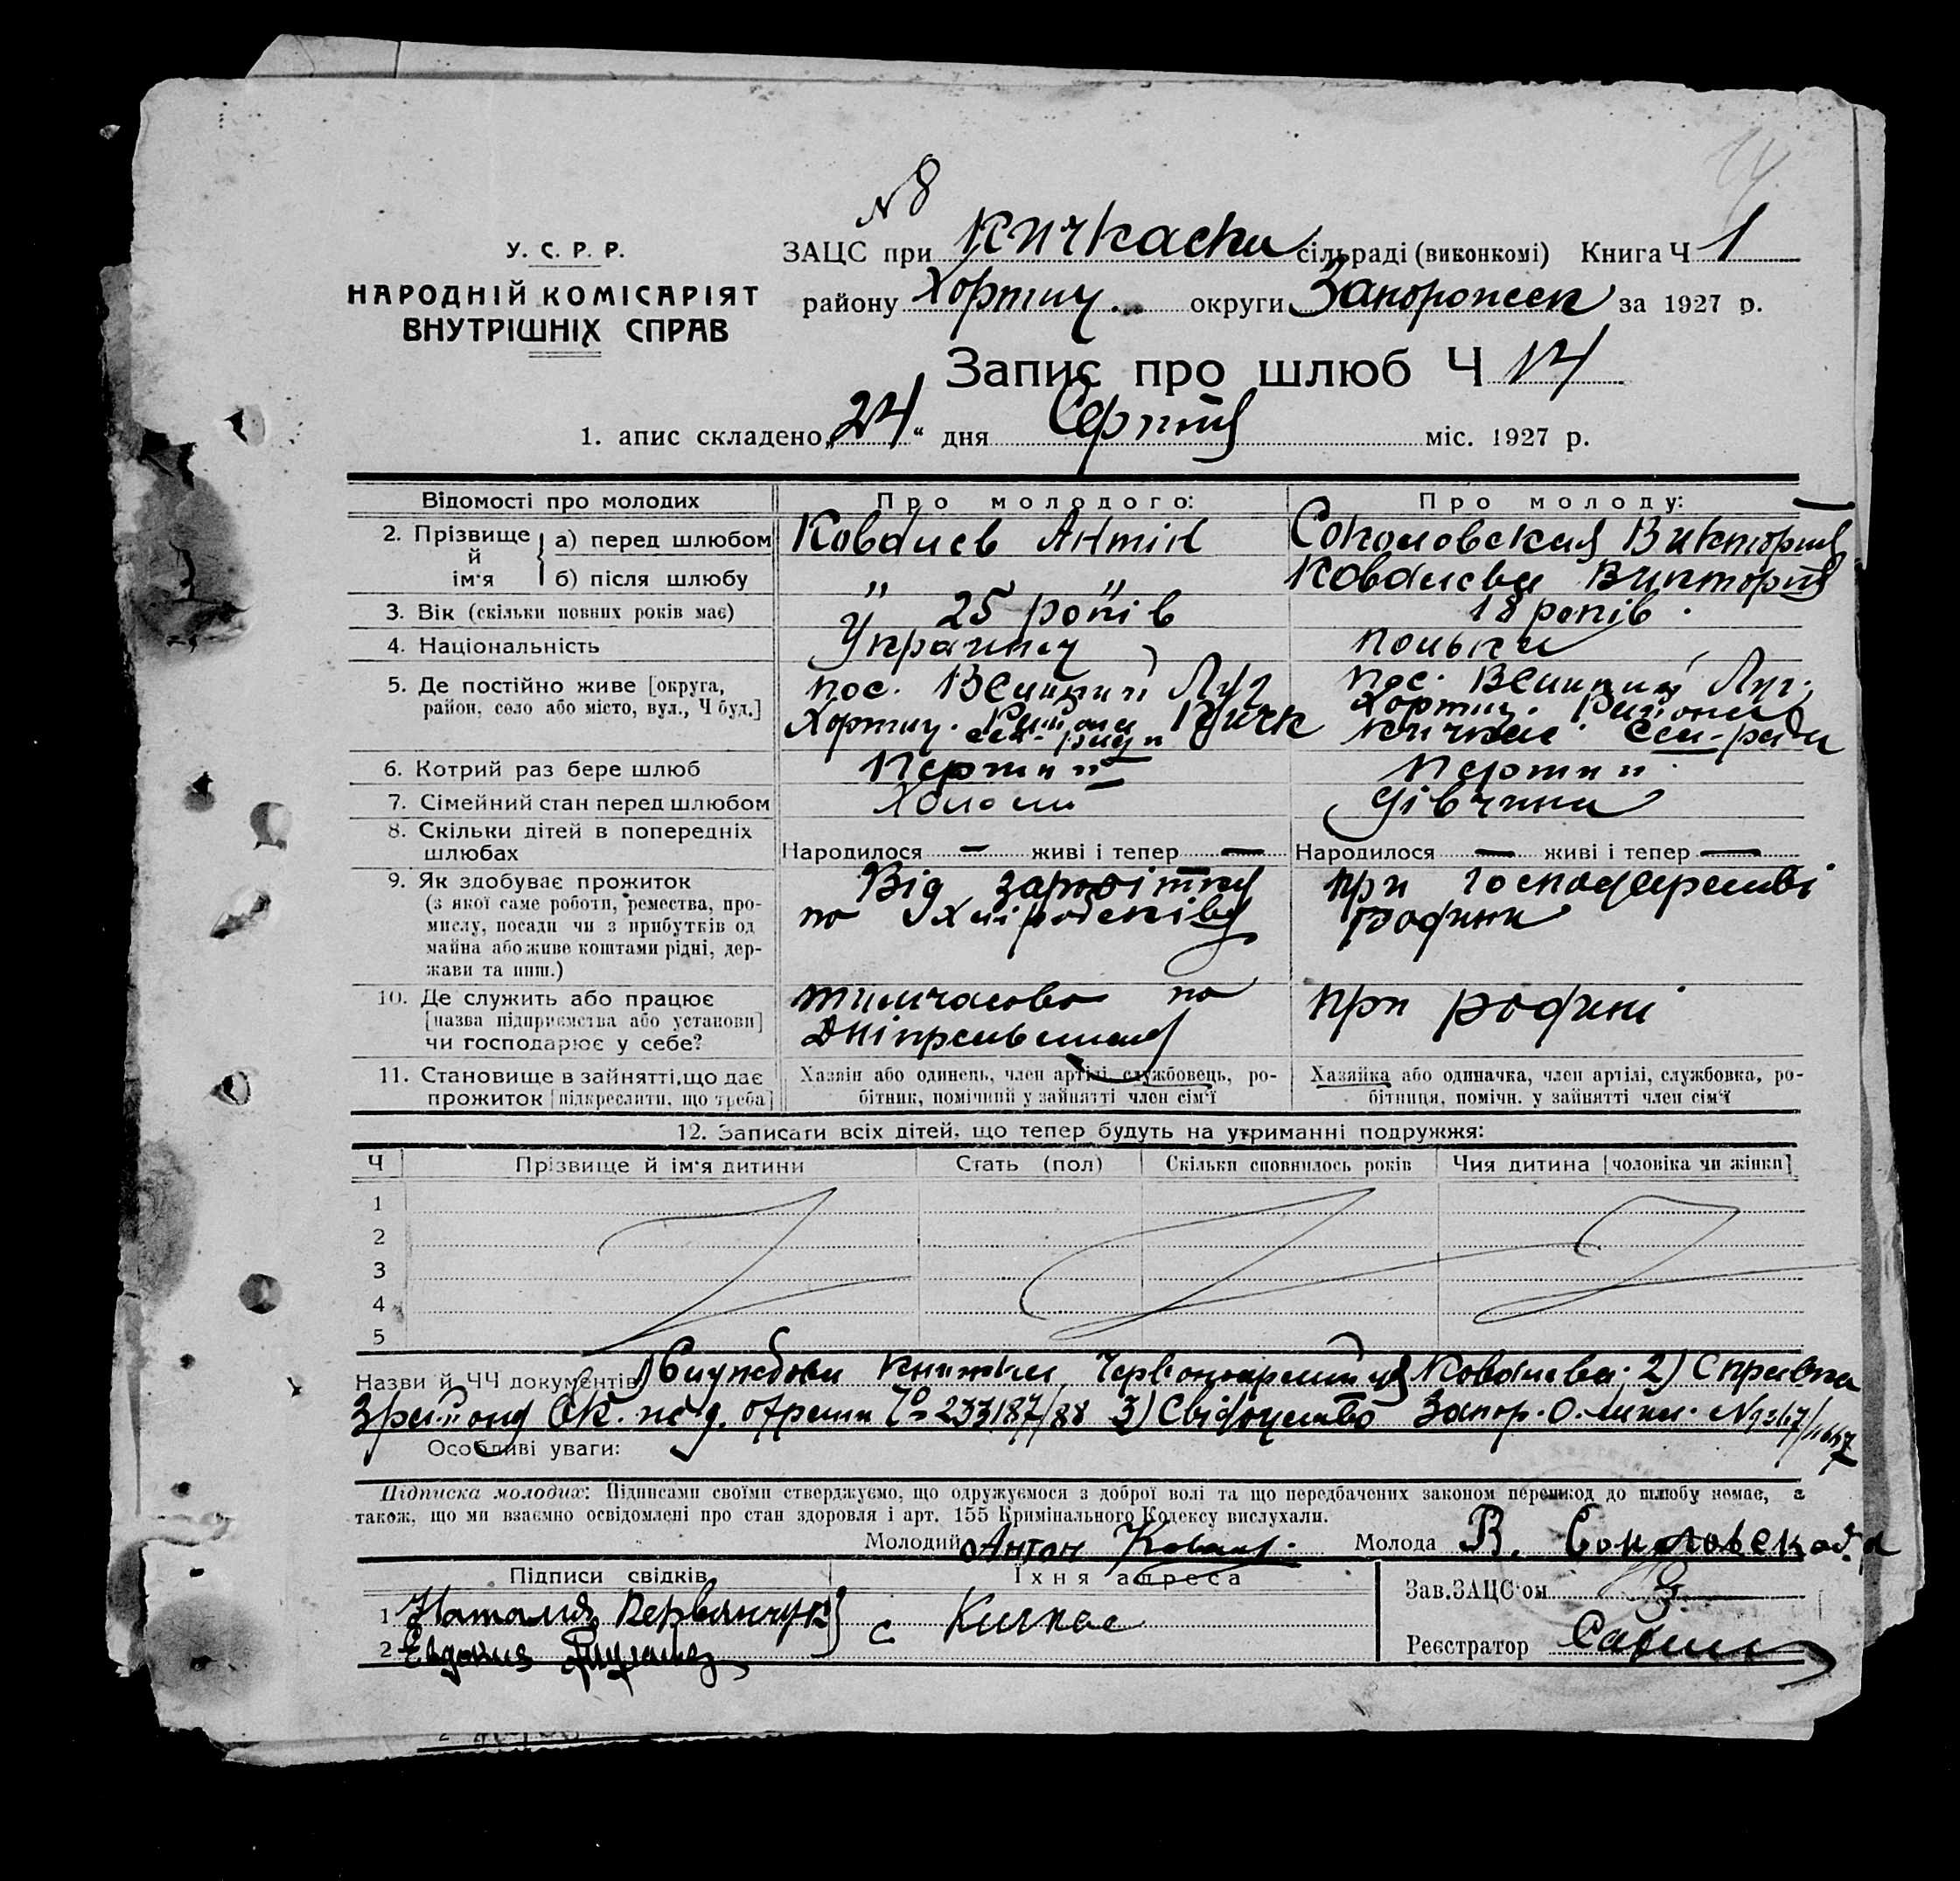 № 8
У. С. Р. Р.
НАРОДНІЙ КОМІСАРІЯТ
ВНУТРІШНІХ СПРАВ
ЗАЦС при Кичкаски сільраді (виконкомі) Книга Ч 1
району Хортиц. округи Запорожск за 1927 р.
Запис про шлюб Ч 14
1. апис складено „24“ дня Серпня міс. 1927 р.
Відомості про молодих Про молодого: Про молоду:
2. Прізвище й ім'я а) перед шлюбом Ковалів Антін Соколовская Виктория
б) після шлюбу " " Ковалева Виктория
3. Вік (скільки повних років має) 25 років 18 років.
4. Національність Українець полька
5. Де постійно живе [округа, район, село або місто, вул., Ч буд.]
пос. Великий Луг Хортиц. Района Кичк сел-ради
пос. Великий Луг, Хортиц. Района Кичкас. Сел-ради
6. Котрий раз бере шлюб Первий Первий
7. Сімейний стан перед шлюбом Холост дівчина
8. Скільки дітей в попередніх шлюбах Народилося — живі і тепер — Народилося — живі і тепер —
9. Як здобуває прожиток
(з якої саме роботи, ремества, промислу, посади чи з прибутків од
майна або живе коштами рідні, держави та инш.)
Від заробітка по
при господарстві родини
10. Де служить або працює
[назва підприємства або установи]
чи господарює у себе?
тимчасово на
при родині
11. Становище в зайнятті, що дає прожиток [підкреслити, що треба]
Хазяін або одинець, член артілі, службовець, робітник, помічний у зайнятті член сім'ї
Хазяйка або одиначка, член артілі, службовка, робітниця, помічн. у зайнятті член сім'ї
12. Записати всіх дітей, що тепер будуть на утриманні подружжя:
Ч Прізвище й ім'я дитини Стать (пол) Скільки сповнилось років Чия дитина [чоловіка чи жінки]
1
2
3
4
5
Назви й ЧЧ документів 1) Службова книжка Червоноармійця Ковалева. 2) Справка
233187/88 3) Свідоцтво Запор.
Особливі уваги:
Підписка молодих: Підписами своїми стверджуємо, що одружуємося з доброї волі та що передбачених законом перешкод до шлюбу немає, а
також, що ми взаємно освідомлені про стан здоровля і арт. 155 Кримінального Кодексу вислухали.
Молодий Антон Молода В. Соколовская
Підписи свідків Їхня адреса Зав.ЗАЦС'ом
1 Наталия с Кичкас
2 Евдокия Реєстратор